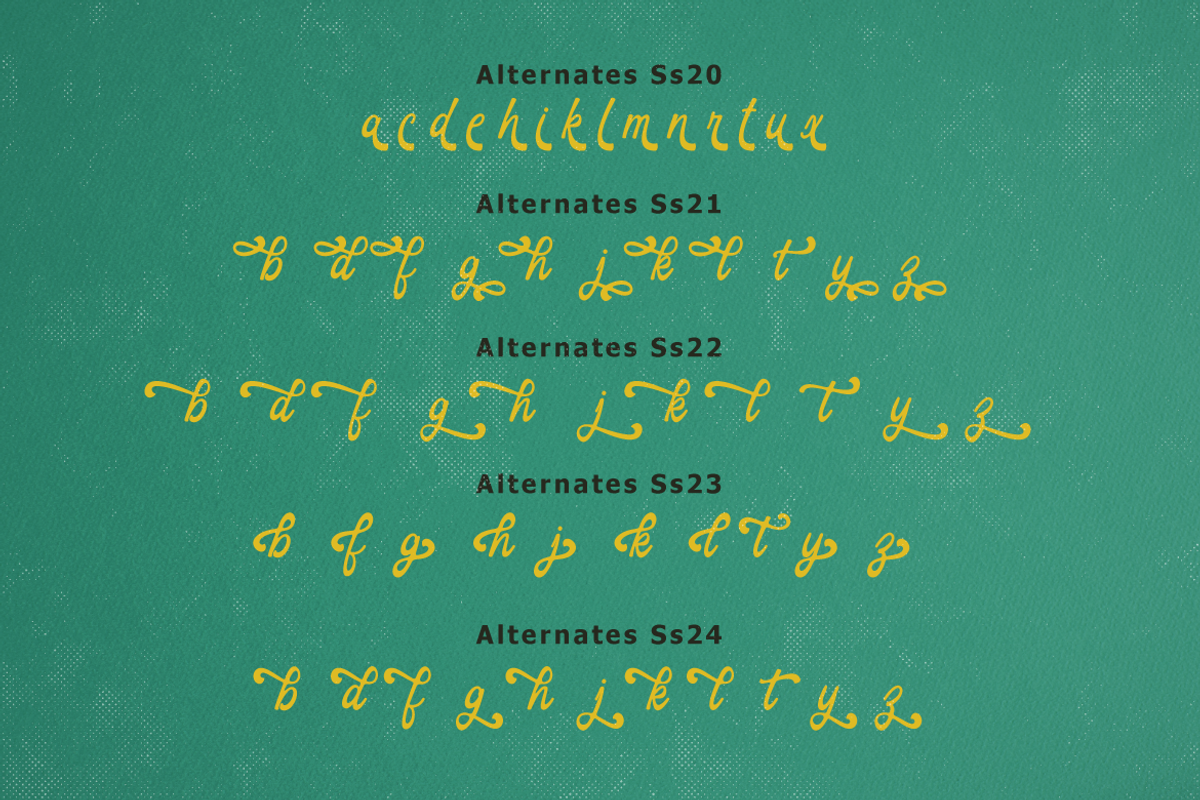 Alternates Ss20
acdehiklmnrtux
Alternates Ss21
b d f g h j k l t y z
Alternates Ss22
b d f g h j k l t y z
Alternates Ss23
b f g h j k l t y z
Alternates Ss24
b d f g h j k l t y z